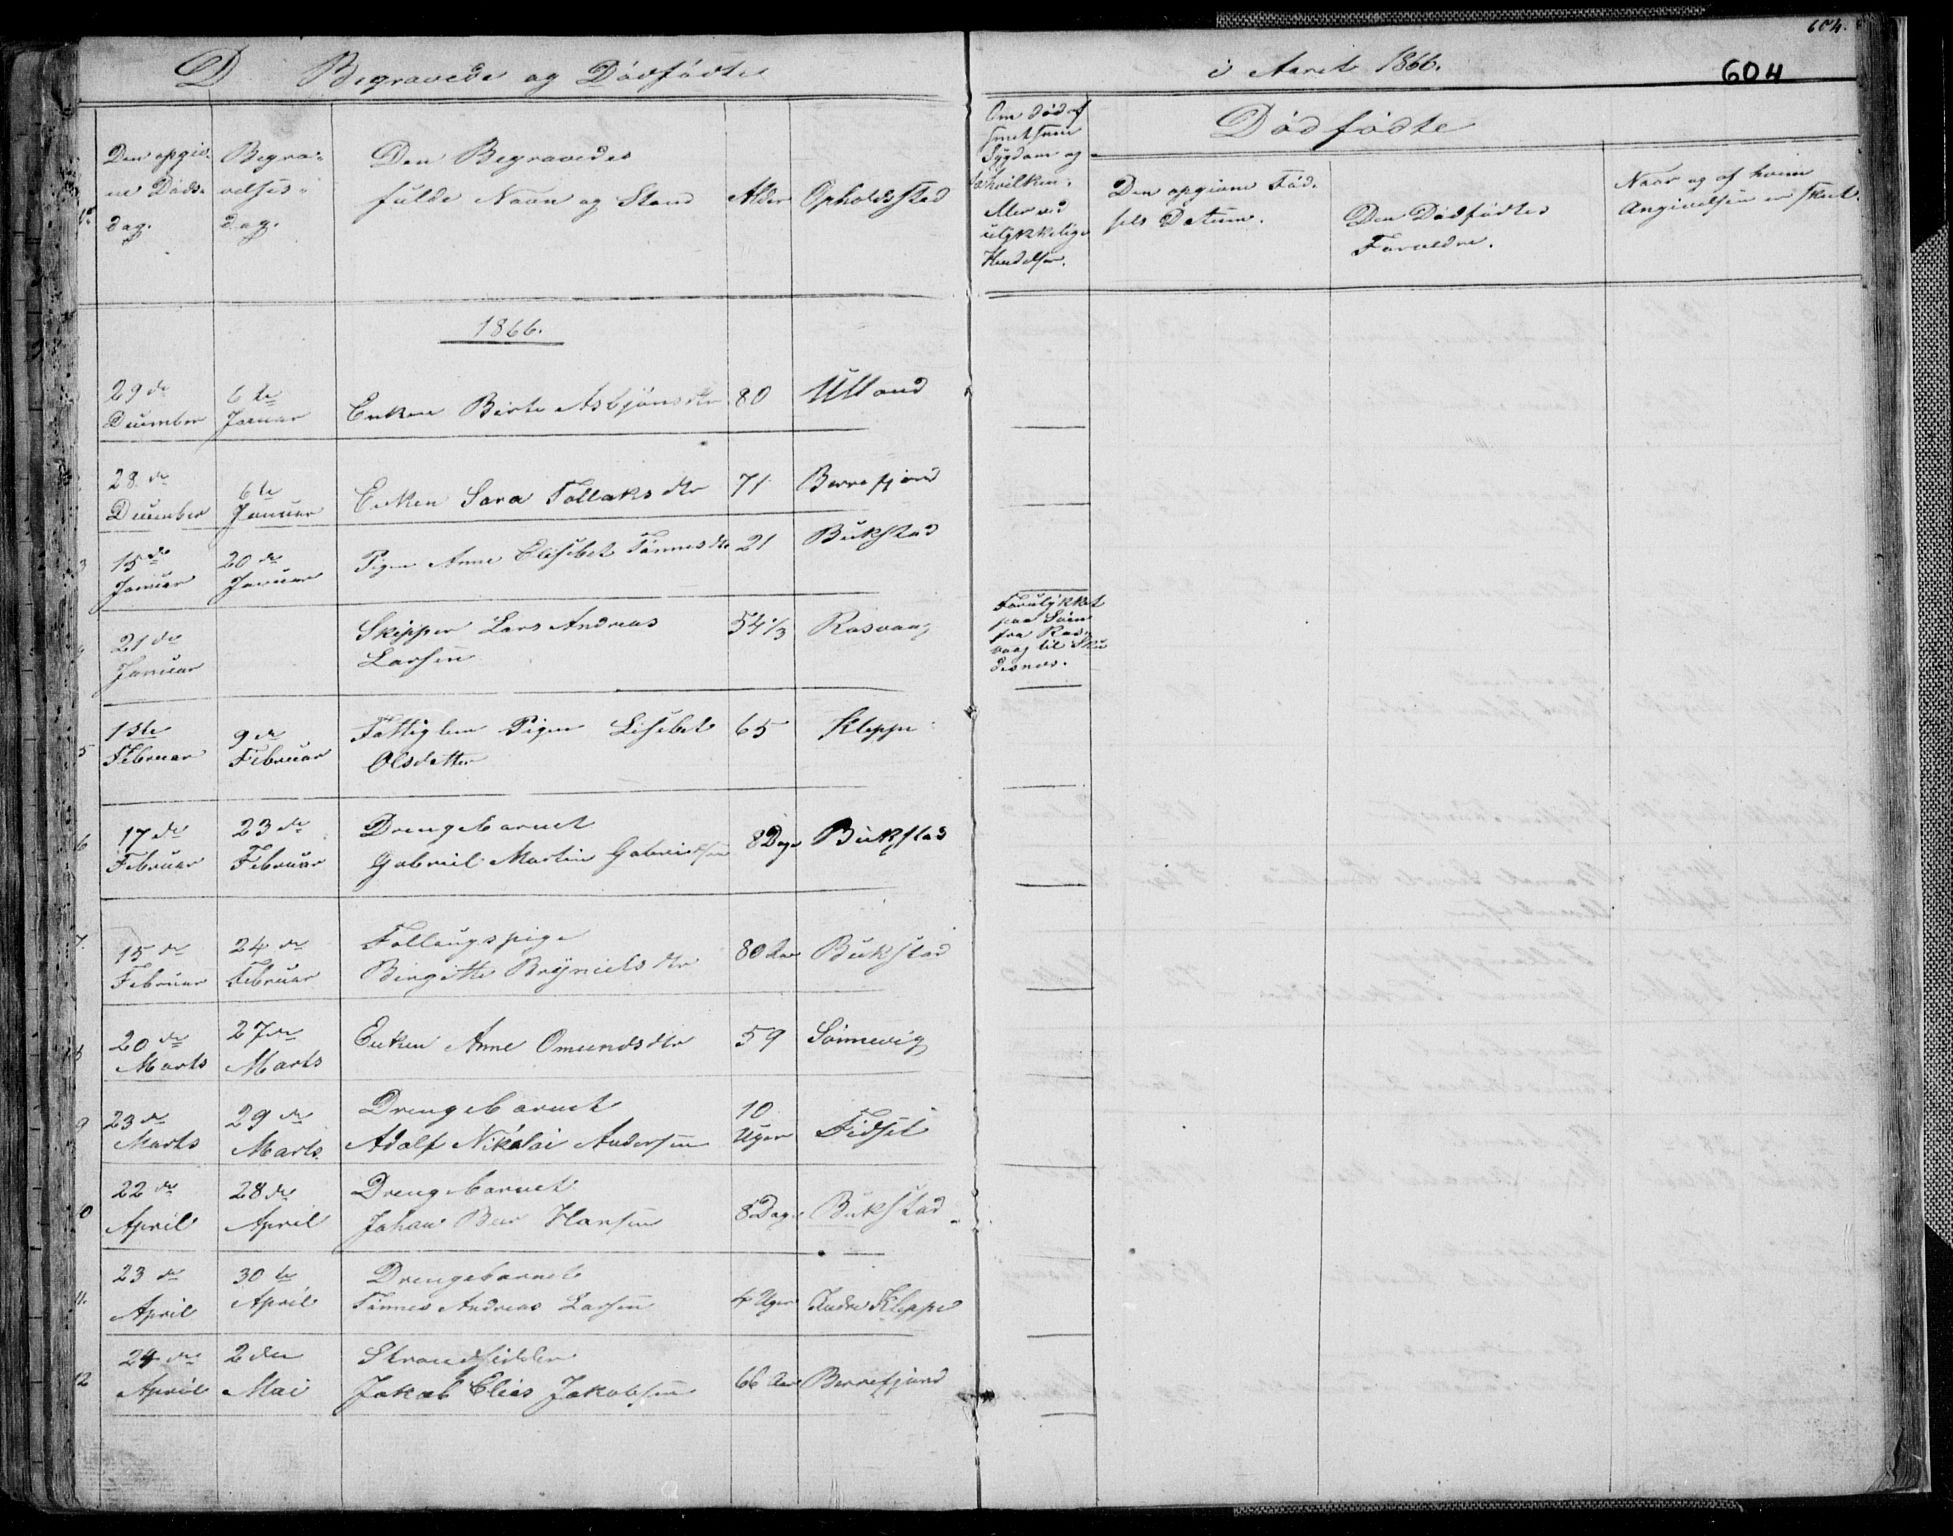 604.
604
D Begravede og Dødfødte
i Aaret 1866.
Nr
Den opgiv-
ne Døds-
dag.
Begra-
velses-
dag.
Den Begravedes
fulde Navn og Stand
Alder
Opholdssted
Om død af
smitsom
Sygdom og
hvilken.
Eller ved
ulykkelige
Hendelser.
Dødfødte
Den opgivne Fød-
sels Datum.
Den Dødfødtes
Forældre.
Naar og af hvem
Angivelsen er skeet.
1866.
29de December 6te Januar Enken Birte Asbjønsdtr 80 Ulland
28de December 6te Januar Enken Sara Tollaksdtr 71 Berrefjord
3 15de Januar 20de Januar Pigen Anne Elisebet Tønnesdtr 21 Bukstad
4 21de Januar Skipper Lars Andreas
Larsen 54 1/3 Rasvaag
Forulykket
paa Søen
fra Ras-
vaag til Sku
desnes.
5 1ste Februar 9de Februar Fattiglem Pigen Lisebet
Olsdatter 65 Kleppe
6 17de Februar 23de Februar Drengebarnet
Gabriel Martin Gabrielsen 8 Dage Bukstad
7. 15de Februar 24de Februar Follaugspige
Birgitte Brynielsdtr 80 Aar Bukstad
8 20de Marts 27de Marts Enken Anne Omundsdtr 59 Sønnevig
9 23de Marts 29de Marts Drengebarnet
Adolf Nikolai Andersen 10 Uger Fidsel
10 22de April 28de April Drengebarnet
Johan Hansen 8 Dage Bukstad
11. 23de April 30te April Drengebarnet
Tønnes Andreas Larsen 4 Uger Indre Kleppe
12 24de April 2den Mai Strandsidder
Jakob Elias Jakobsen 66 Aar Berrefjord